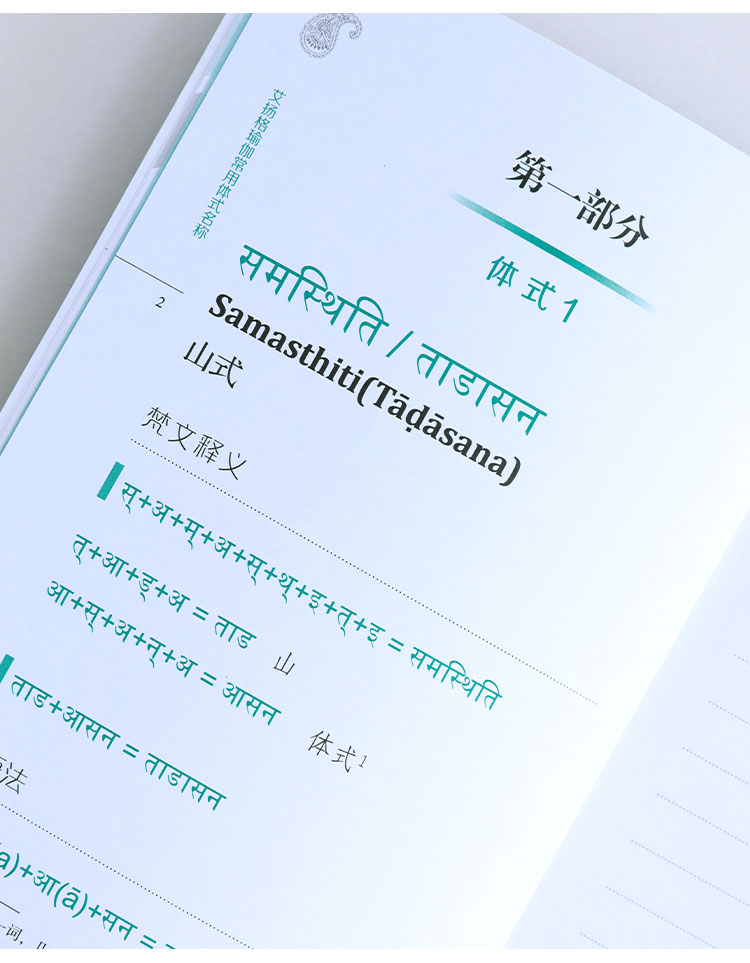 艾扬格瑜伽常用体式名称
2
第一部分
体式1
समस्थिति / ताडासन
Samasthiti(Tāḍāsana)
山式
梵文释义
स्+अ+म्+अ+स्+थ्+इ+त्+इ = समस्थिति
त्+आ+ड्+अ = ताड 山
आ+स्+अ+न्+अ = आसन 体式1
ताड+आसन = ताडासन
法
a)+आ(ā)+सन =
一词,